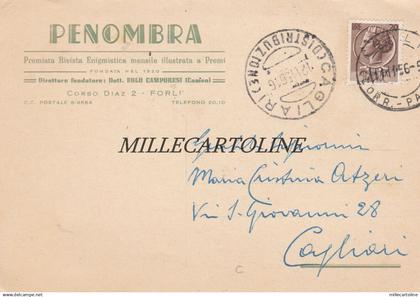 PENOMBRA
Premiata Rivista Enigmistica mensile illustrata a Premi
FONDATA NEL 1920
Direttore fondatore: Dott. ROLO CAMPORESI (Cameo)
CORSO DIAZ 2 - FORLI'
C.C. POSTALE
TELEFONO 20.10
CAGLIARI (DISTRIBUZIONE)
MILLECARTOLINE
Maria Cristina Atzeri
Via S. Giovanni 28
Cagliari
millecartoline